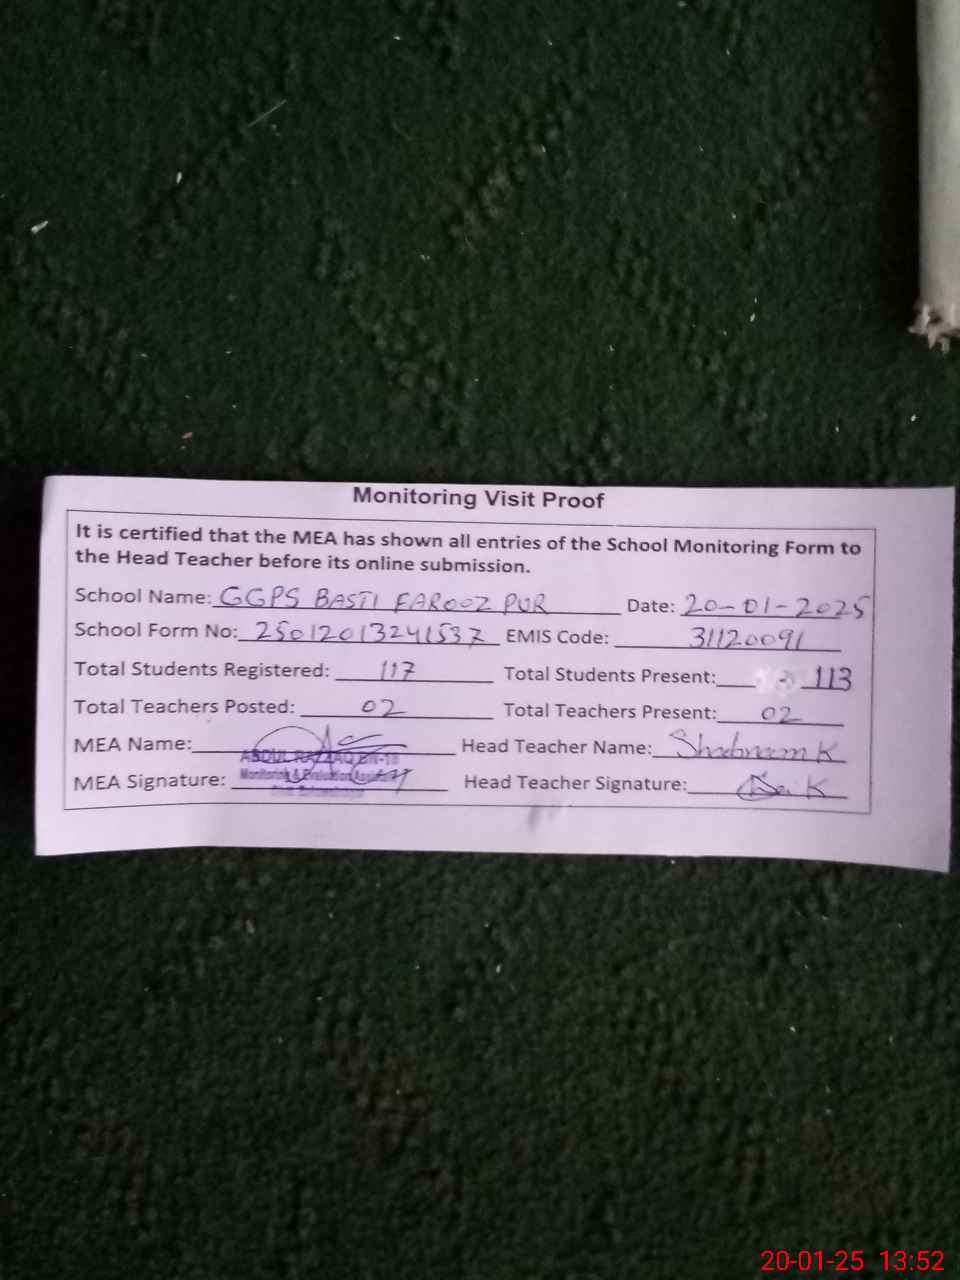 Monitoring Visit Proof
It is certified that the MEA has shown all entries of the School Monitoring Form to
the Head Teacher before its online submission.
School Name: GGPS BASTI FAROOZ PUR Date: 20-01-2025
School Form No: 25012013241537 EMIS Code: 31120091
Total Students Registered: 117 Total Students Present: 113
Total Teachers Posted: 02 Total Teachers Present: 02
MEA Name: Head Teacher Name: Shabnam K
ABDUL RAZZAQ
MEA Signature: Monitoring & Evaluation Head Teacher Signature:
20-01-25 13:52